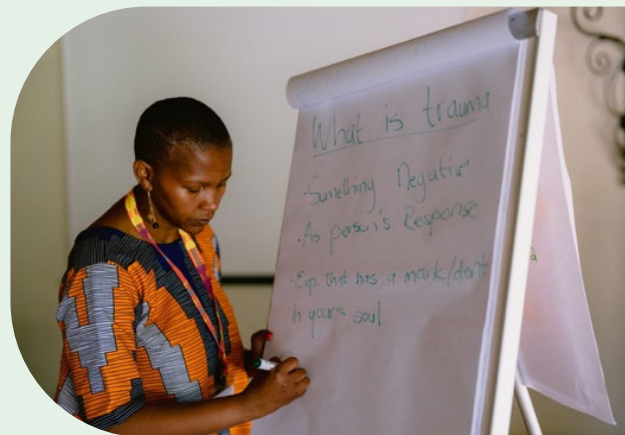 What is trauma
· Something Negative
· As person's Response
· Exp. that has a mark/dent
in yours soul